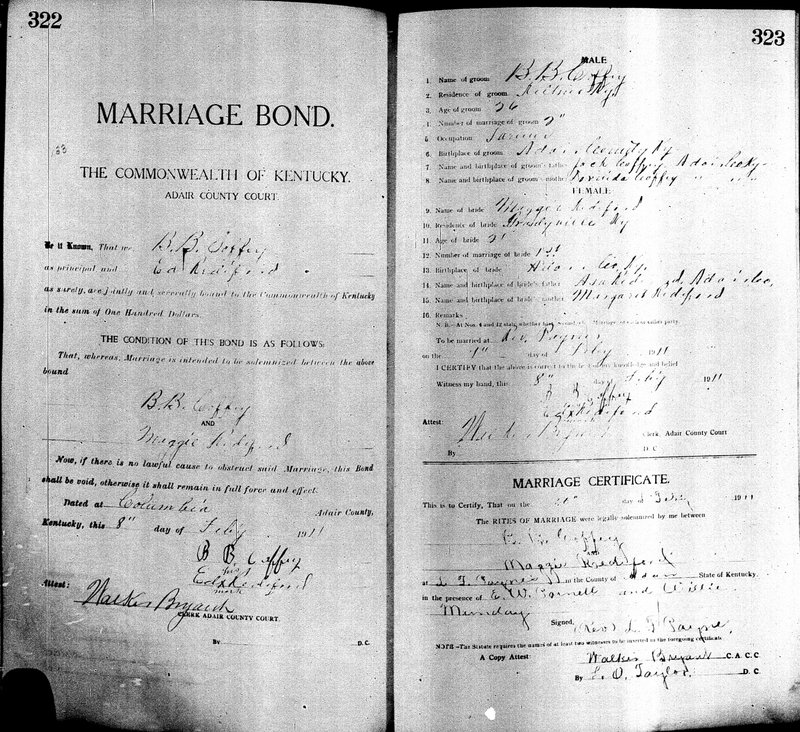 322
MARRIAGE BOND.
THE COMMONWEALTH OF KENTUCKY.
ADAIR COUNTY COURT
Be it Known, That we B. B. Coffey
as principal and Ed Rediford
as surety, are jointly and severally bound to the Commonwealth of Kentucky
in the sum of One Hundred Dollars.
THE CONDITION OF THIS BOND IS AS FOLLOWS:
That, whereas, Marriage is intended to be solemnized between the above
bound
B. B. Coffey
AND
Maggie Rediford
Now, if there is no lawful cause to obstruct said Marriage, this Bond
shall be void, otherwise it shall remain in full force and effect.
Dated at Columbia Adair County,
Kentucky, this 8" day of Feby 1911
B B Coffey
his
Ed X Rediford
mark
Attest:
Walker Bryant
CLERK ADAIR COUNTY COURT.
By D.C.
323
MALE
1. Name of groom B. B. Coffey
2. Residence of groom Ky
3. Age of groom 26
4. Number of marriage of groom 2"
5. Occupation Farmer
6. Birthplace of groom Adair County Ky
7. Name and birthplace of groom's father Jack Coffey Adair Co Ky
8. Name and birthplace of groom's mother Coffey " "
FEMALE
9. Name of bride Maggie Rediford
10. Residence of bride Gradyville Ky
11. Age of bride 21
12. Number of marriage of bride 1st
13. Birthplace of bride Adair Co Ky
14. Name and birthplace of bride's father Adair Co
15. Name and birthplace of bride's mother Margaret Rediford
16. Remarks
N. B.—At Nos. 4 and 12 state whether
To be married at Rev. Paynes
on the day of Feby 1911
I CERTIFY that the above is correct to the best of my knowledge and belief
Witness my hand, this 8" day of Feby 1911
B B Coffey
Ed X Rediford
Attest:
Walker Bryant Clerk, Adair County Court
By D C
MARRIAGE CERTIFICATE.
This is to Certify, That on the day of Feby 1911
The RITES OF MARRIAGE were legally solemnized by me between
B. B. Coffey
AND
Maggie Rediford
at L. F. Paynes in the County of Adair State of Kentucky,
in the presence of E. W. and Willie
Munday
Signed, Rev. L. F. Payne
NOTE—The Statute requires the names of at least two witnesses to be inserted in the foregoing certificate.
A Copy Attest: Walker Bryant C. A. C. C.
By L. O. Taylor D. C.